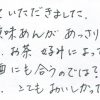 ていただきました.
味あんが あっさり
お茶 好みによって
にも合うのでは?
とてもおいしかっ